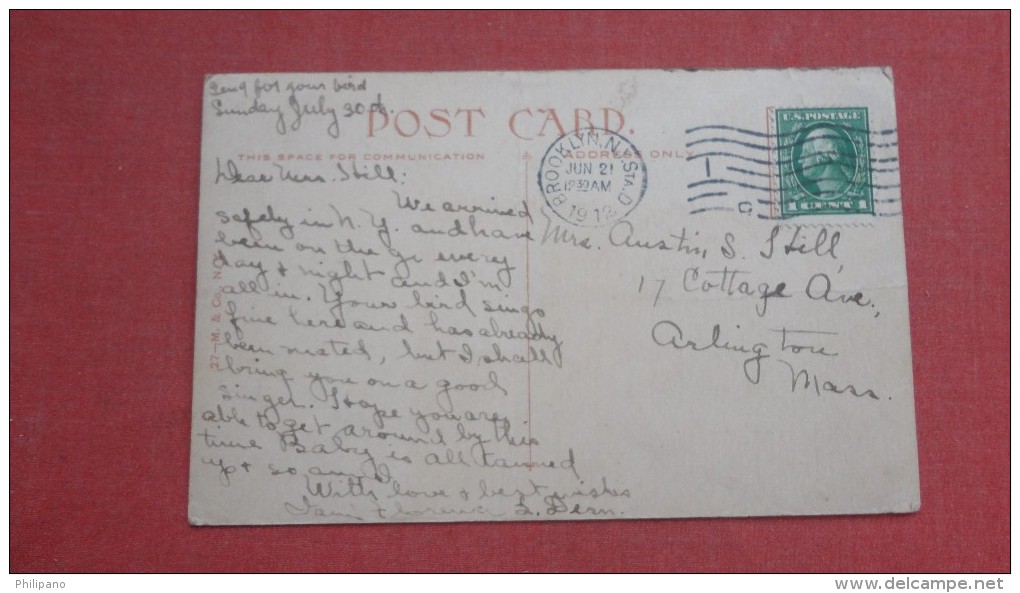 Send for your bird
Sunday July 30th.
POST CARD.
THIS SPACE FOR COMMUNICATION
ADDRESS ONLY
Dear Mrs. Still:
We arrived
safely in N. Y. and have
been on the go every
day & night and I'm
all in. Your bird sings
fine here and has already
been mated, but I shall
bring you on a good
singer. I hope you are
able to get around by this
time. Baby is all tanned
up & so am I
With love & best wishes
Florence L. Dern.
27-M. & Co. N
BROOKLYN, N.Y. STA. D.
JUN 21
12 30 AM
1912
1
C
U.S. POSTAGE
1 CENT 1
Mrs. Austin S. Still,
17 Cottage Ave.,
Arlington
Mass.
Philipano
www.delcampe.net